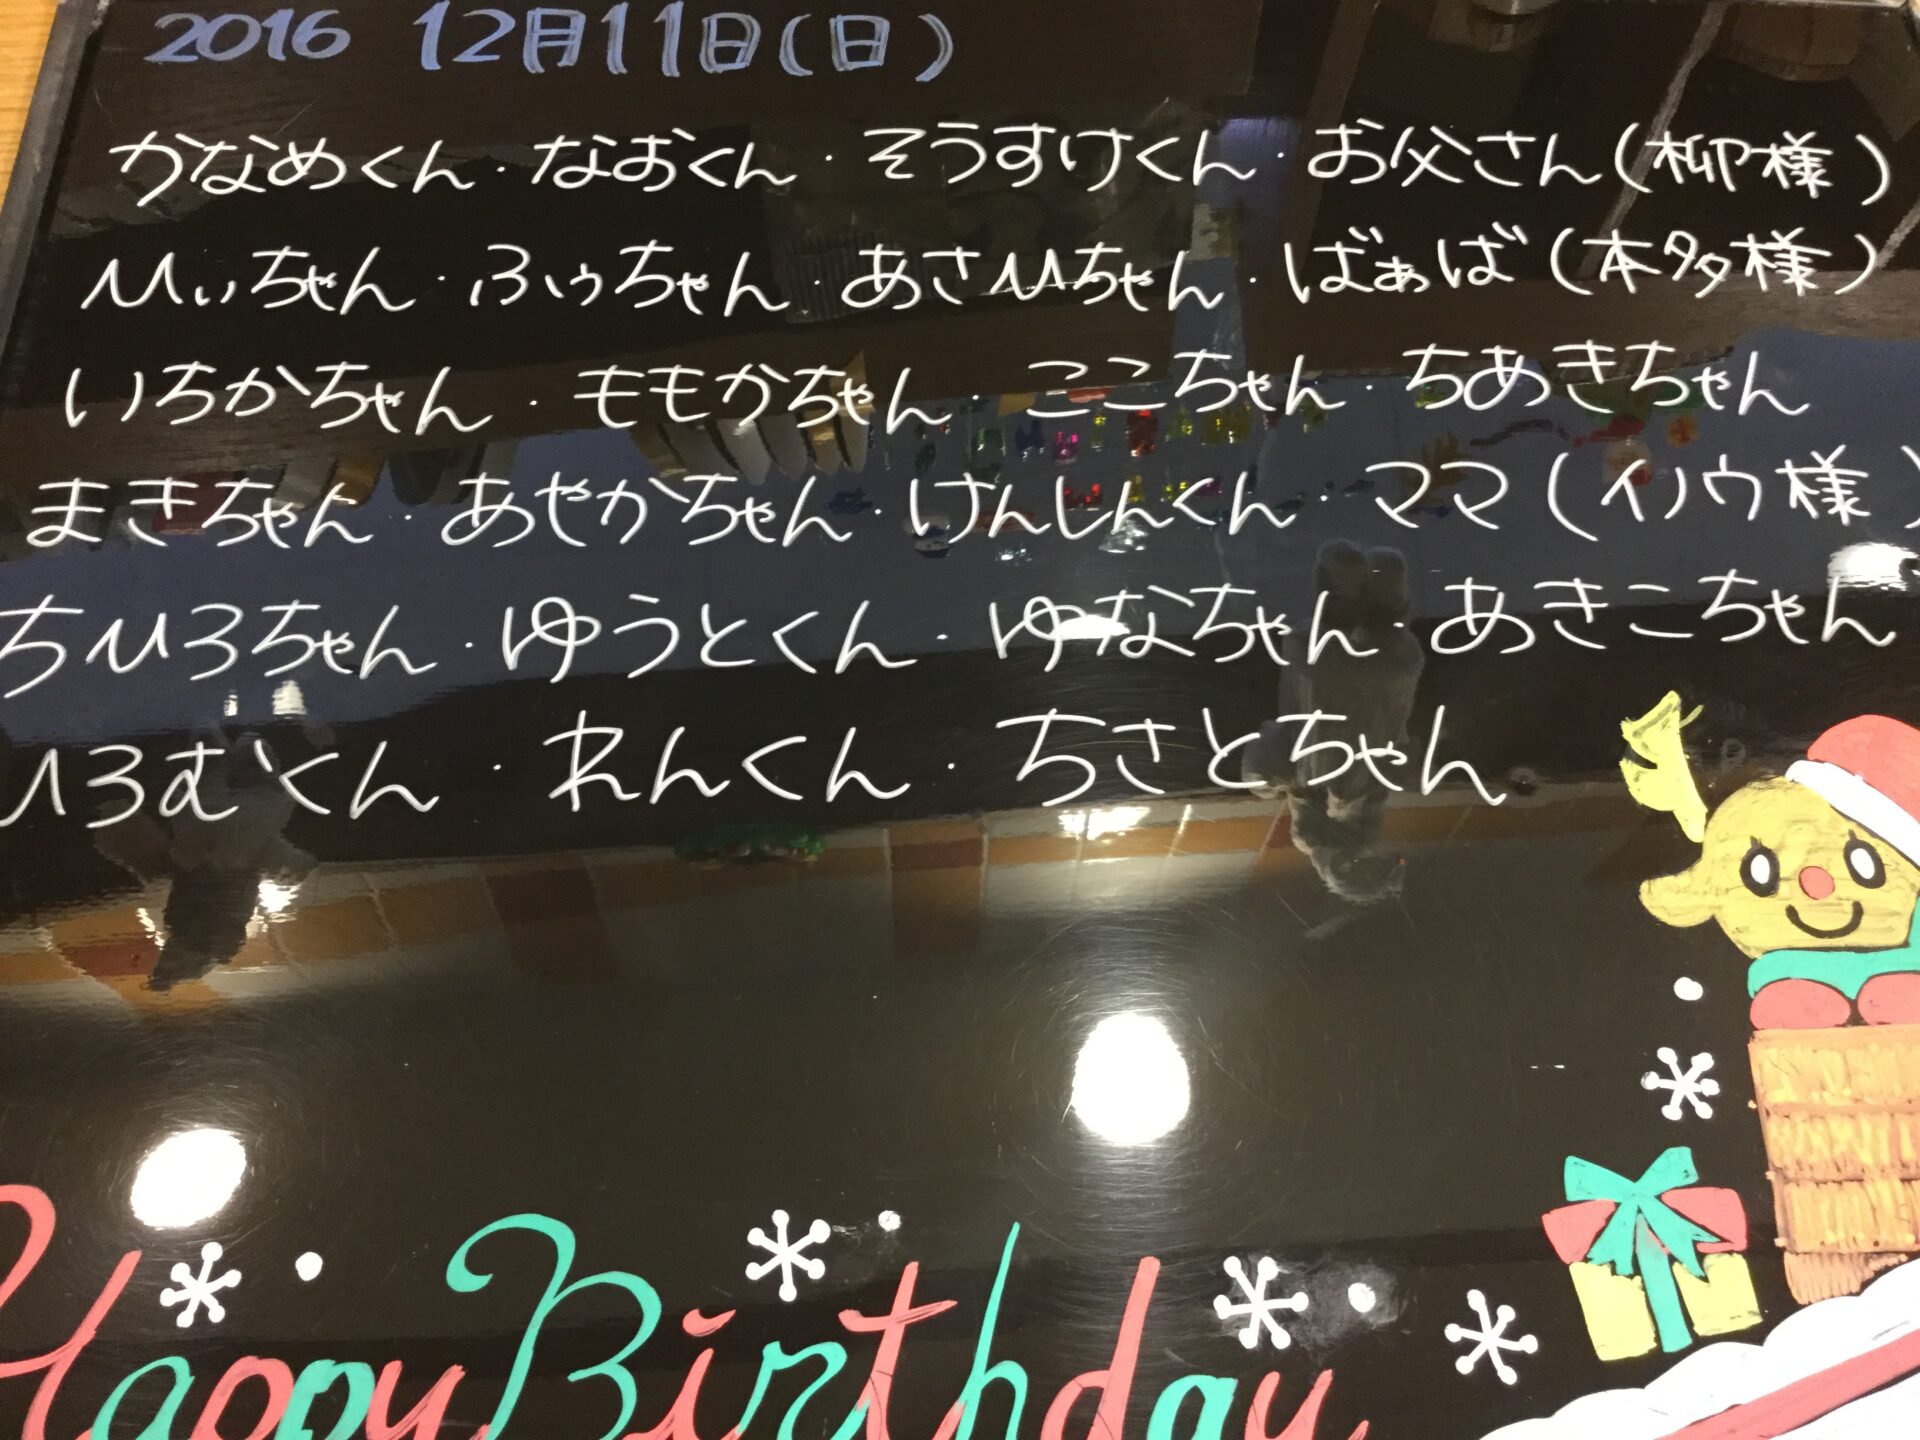 2016 12月11日(日)
かなめくん・なおくん・そうすけくん・お父さん(柳様)
ひぃちゃん・ふぅちゃん・あさひちゃん・ばぁば(本多様)
いちかちゃん・ももかちゃん・ここちゃん・ちあきちゃん
まきちゃん・あやかちゃん・けんしんくん・ママ(イノウ様)
ちひろちゃん・ゆうとくん・ゆなちゃん・あきこちゃん
ひろむくん・れんくん・ちさとちゃん
Happy Birthday